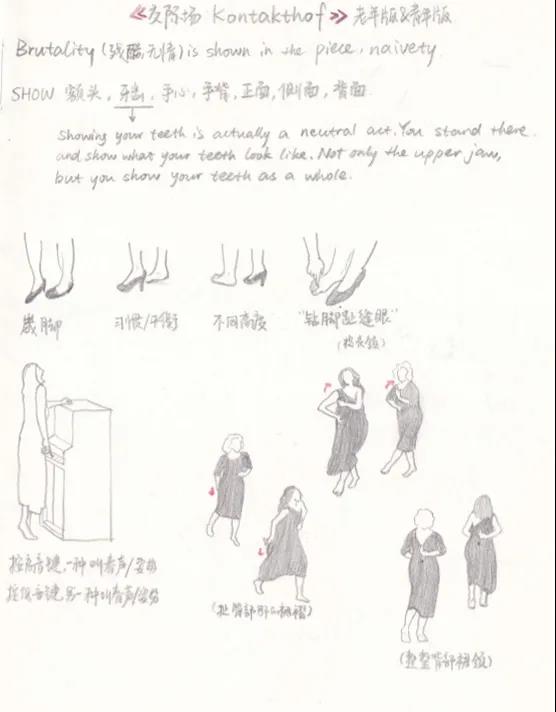 《交际场 Kontakthof》老年版&青年版
Brutality (残酷无情) is shown in the piece, naivety.
SHOW 额头, 牙齿, 手心, 手背, 正面, 侧面, 背面.
Showing your teeth is actually a neutral act. You stand there.
and show what your teeth look like. Not only the upper jaw,
but you show your teeth as a whole.
崴脚
习惯/平衡
不同高度
"钻脚趾缝眼"
按高音键,一种叫春声/姿势
按低音键,另一种叫春声/姿势
(整整背部裙领)